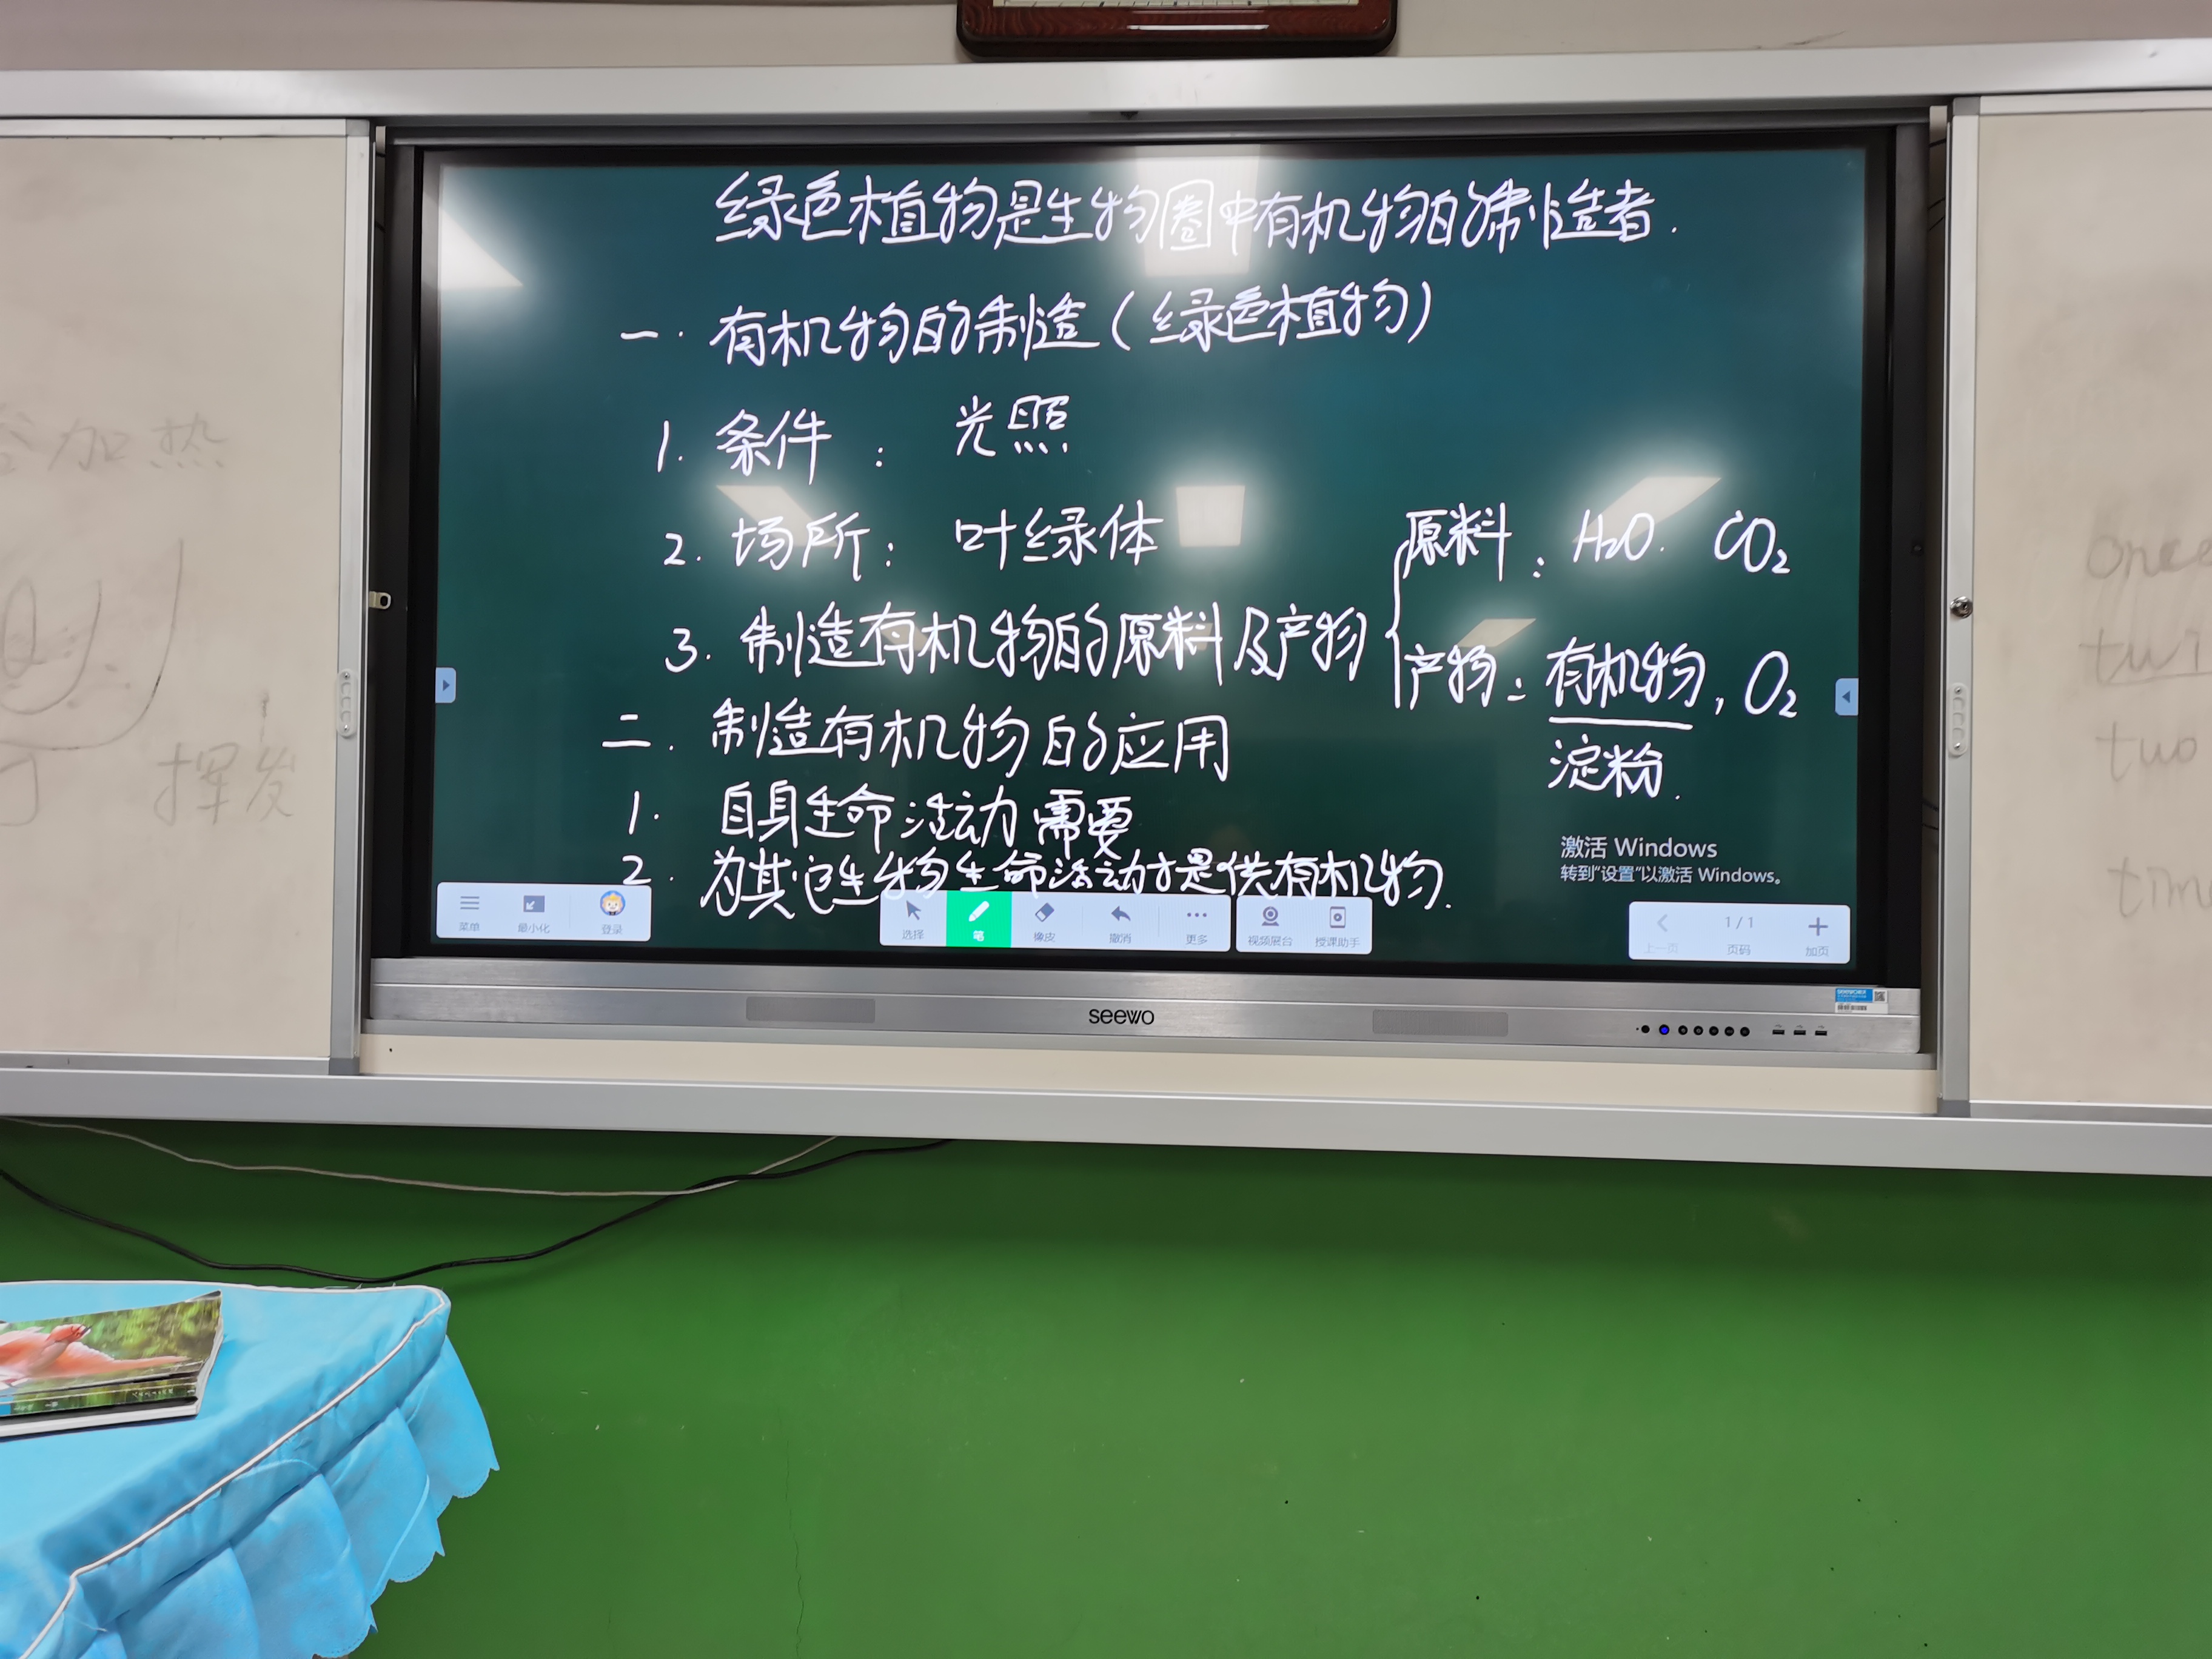 绿色植物是生物圈中有机物的制造者.
一. 有机物的制造(绿色植物)
1. 条件 : 光照
2. 场所: 叶绿体
3. 制造有机物的原料及产物
原料: H₂O. CO₂
产物: 有机物, O₂
淀粉.
二. 制造有机物的应用
1. 自身生命活动需要
2. 为其它生物生命活动提供有机物.
激活 Windows
转到"设置"以激活 Windows。
菜单 最小化 登录
选择 笔 橡皮 撤消 更多 视频展台 授课助手
上一页 1/1 页码 加页
seewo
加热
挥发
once
twi
two
time